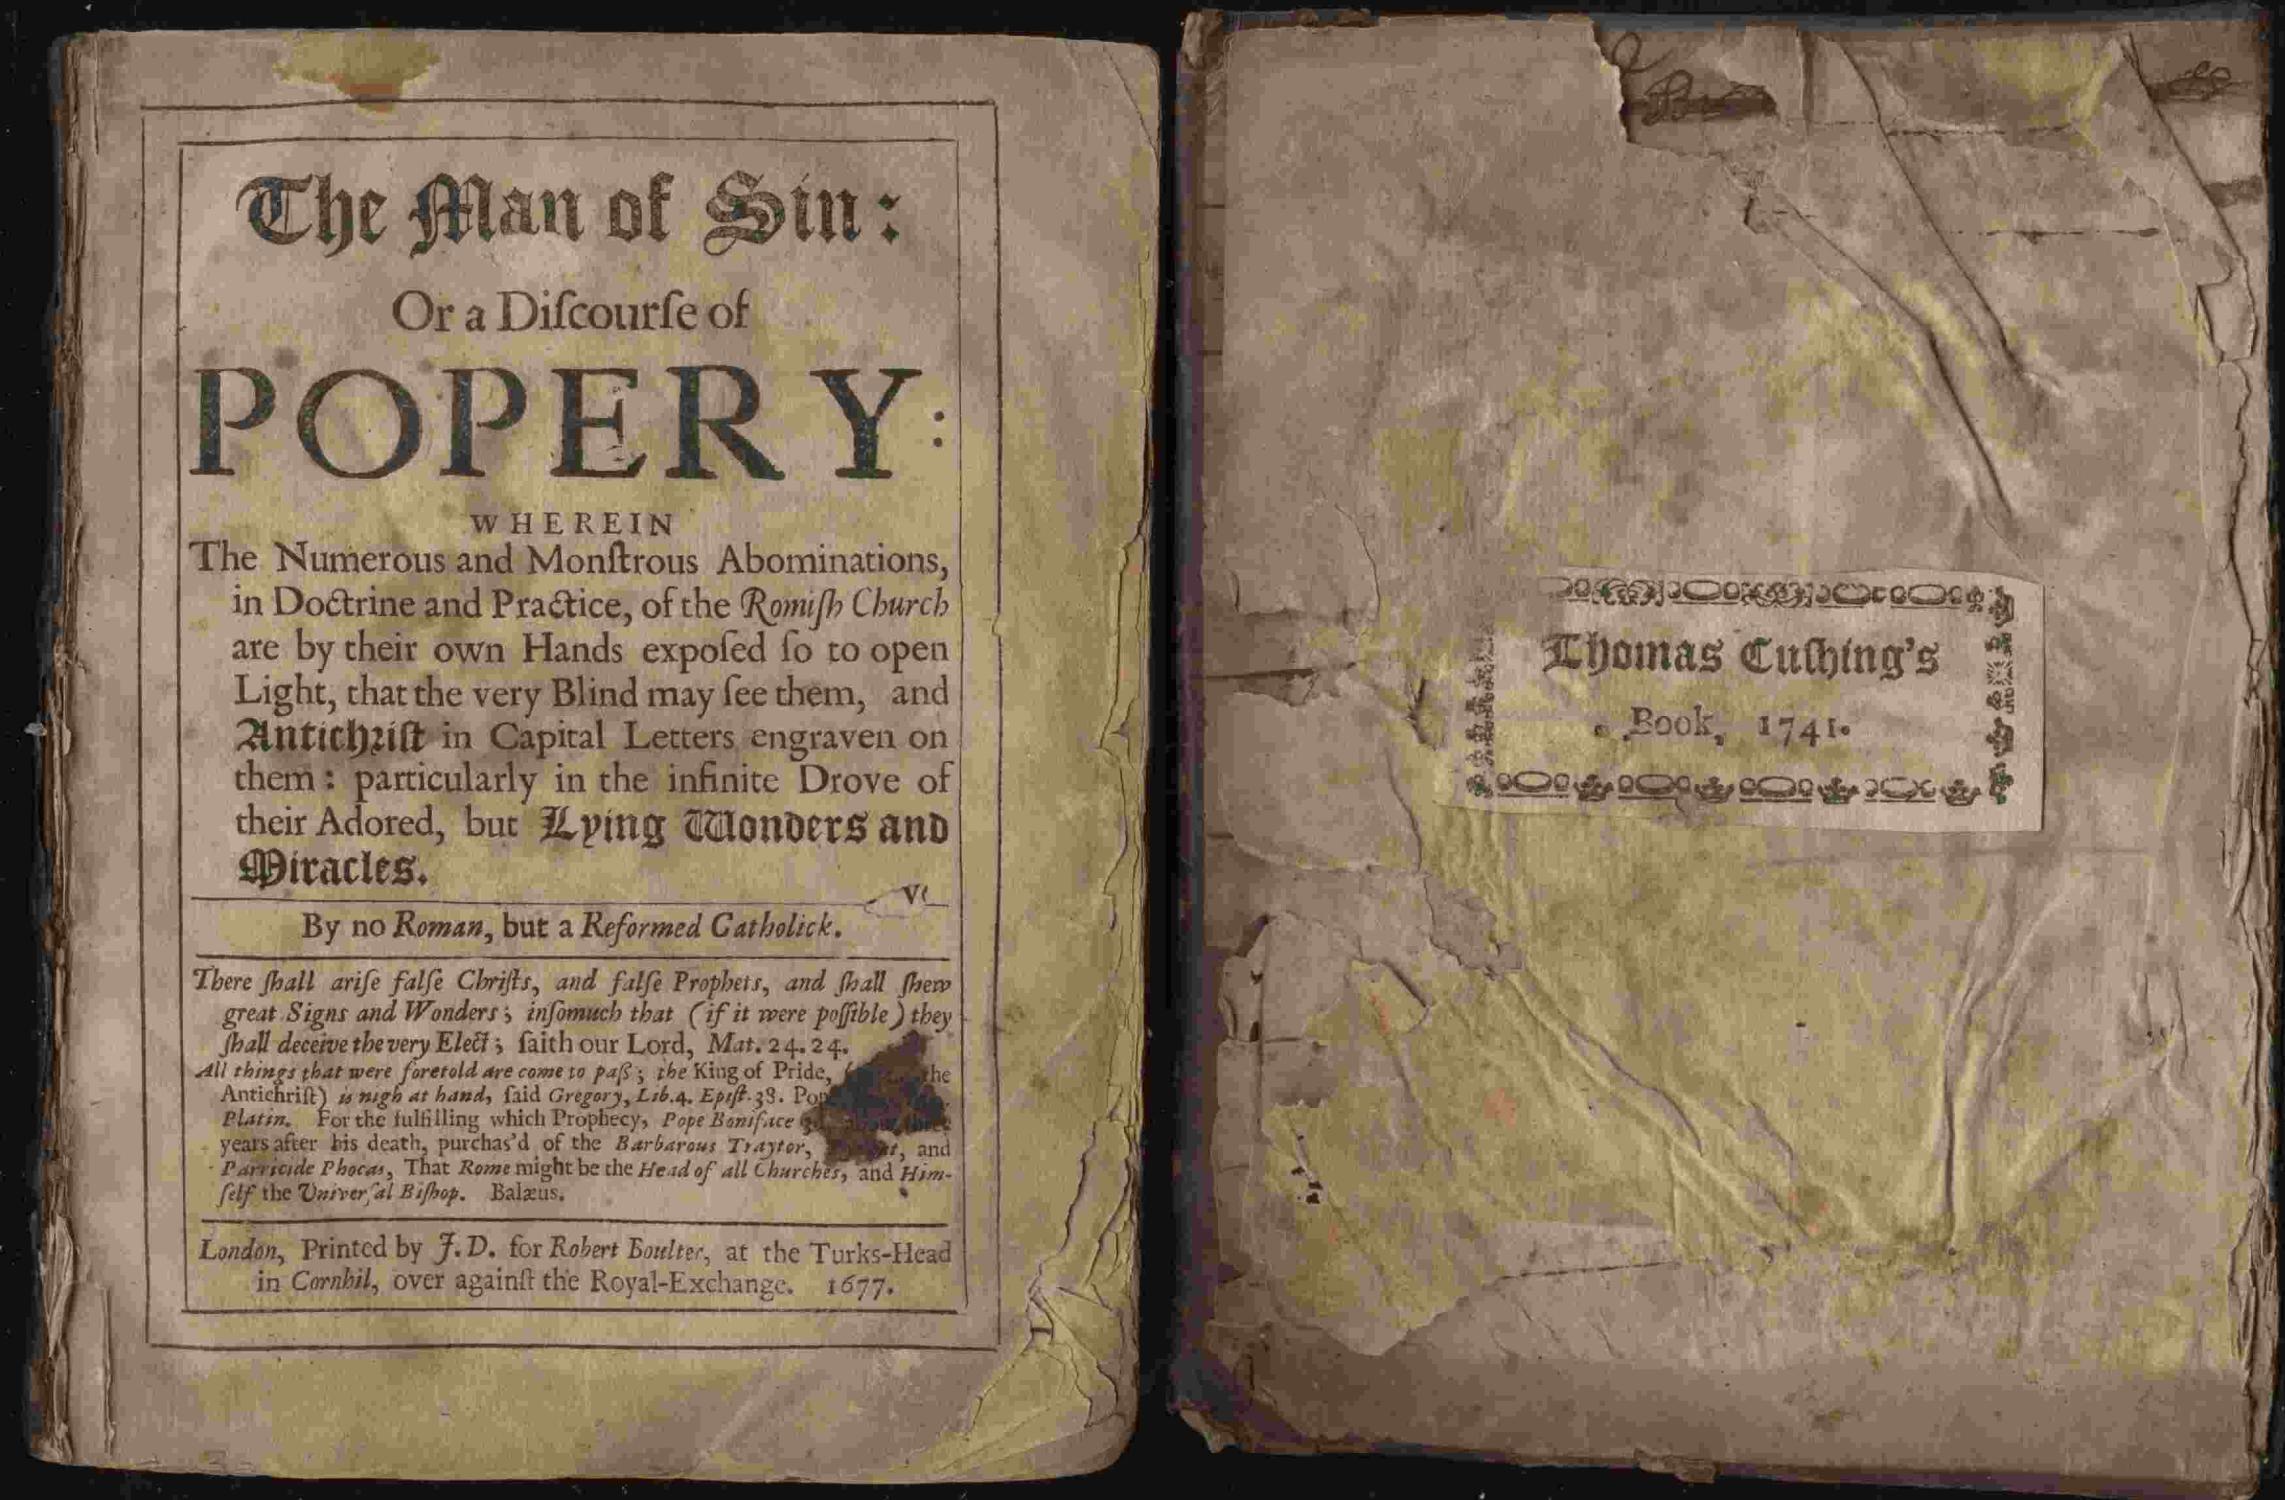 The Man of Sin:
Or a Diſcourſe of
POPERY:
WHEREIN
The Numerous and Monſtrous Abominations,
in Doctrine and Practice, of the Romiſh Church
are by their own Hands expoſed ſo to open
Light, that the very Blind may ſee them, and
Antichriſt in Capital Letters engraven on
them: particularly in the infinite Drove of
their Adored, but Lying Wonders and
Miracles.
By no Roman, but a Reformed Catholick.
There ſhall ariſe falſe Chriſts, and falſe Prophets, and ſhall ſhew
great Signs and Wonders; inſomuch that (if it were poſſible) they
ſhall deceive the very Elect; ſaith our Lord, Mat. 24. 24.
All things that were foretold are come to paſs; the King of Pride, the
Antichriſt) is nigh at hand, ſaid Gregory, Lib. 4. Epiſt. 38.
Platin. For the fulfilling which Prophecy, Pope Boniface
years after his death, purchas'd of the Barbarous Traytor, and
Parricide Phocas, That Rome might be the Head of all Churches, and Him-
ſelf the Univerſal Biſhop. Balæus.
London, Printed by J. D. for Robert Boulter, at the Turks-Head
in Cornhil, over againſt the Royal-Exchange. 1677.
Thomas Cuſhing's
Book, 1741.